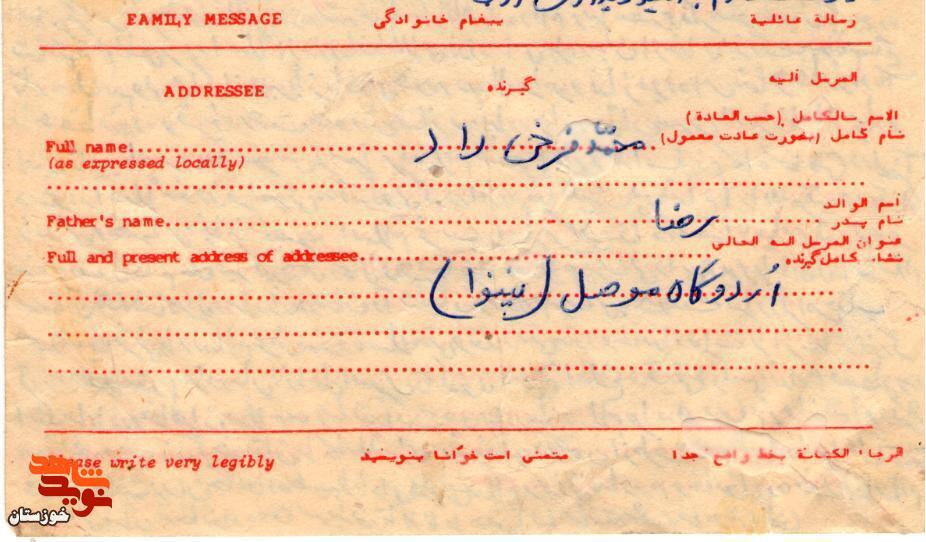 FAMILY MESSAGE پیغام خانوادگی رسالة عائلية
ADDRESSEE گیرنده المرسل اليه
الاسم بالكامل (حسب العادة)
نام کامل (بصورت عادت معمول)
Full name محمد فرخی راد
(as expressed locally)
اسم الوالد
Father's name رضا نام پدر
عنوان المرسل اليه الحالي
Full and present address of addressee نشانی کامل گیرنده
اُردوگاه موصل (نینوا)
Please write very legibly متمنی است خوانا بنویسید الرجاء الكتابة بخط واضح جدا
شاهد
نوید
خوزستان